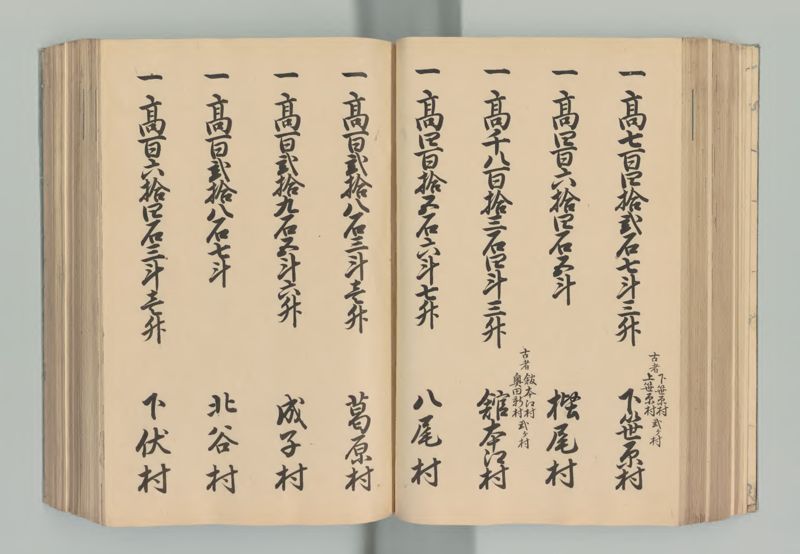 一 高七百四拾弐石七斗三升
古者 下笹原村
上笹原村 弐ケ村
下笹原村
一 高四百六拾四石五斗
樫尾村
一 高千八百拾三石四斗三升
古者 舘本江村
奥田新村 弐ケ村
舘本江村
一 高四百拾五石六斗七升
八尾村
一 高百弐拾八石三斗壱升
葛原村
一 高百弐拾九石五斗六升
成子村
一 高百弐拾八石七斗
北谷村
一 高百六拾四石三斗壱升
下伏村